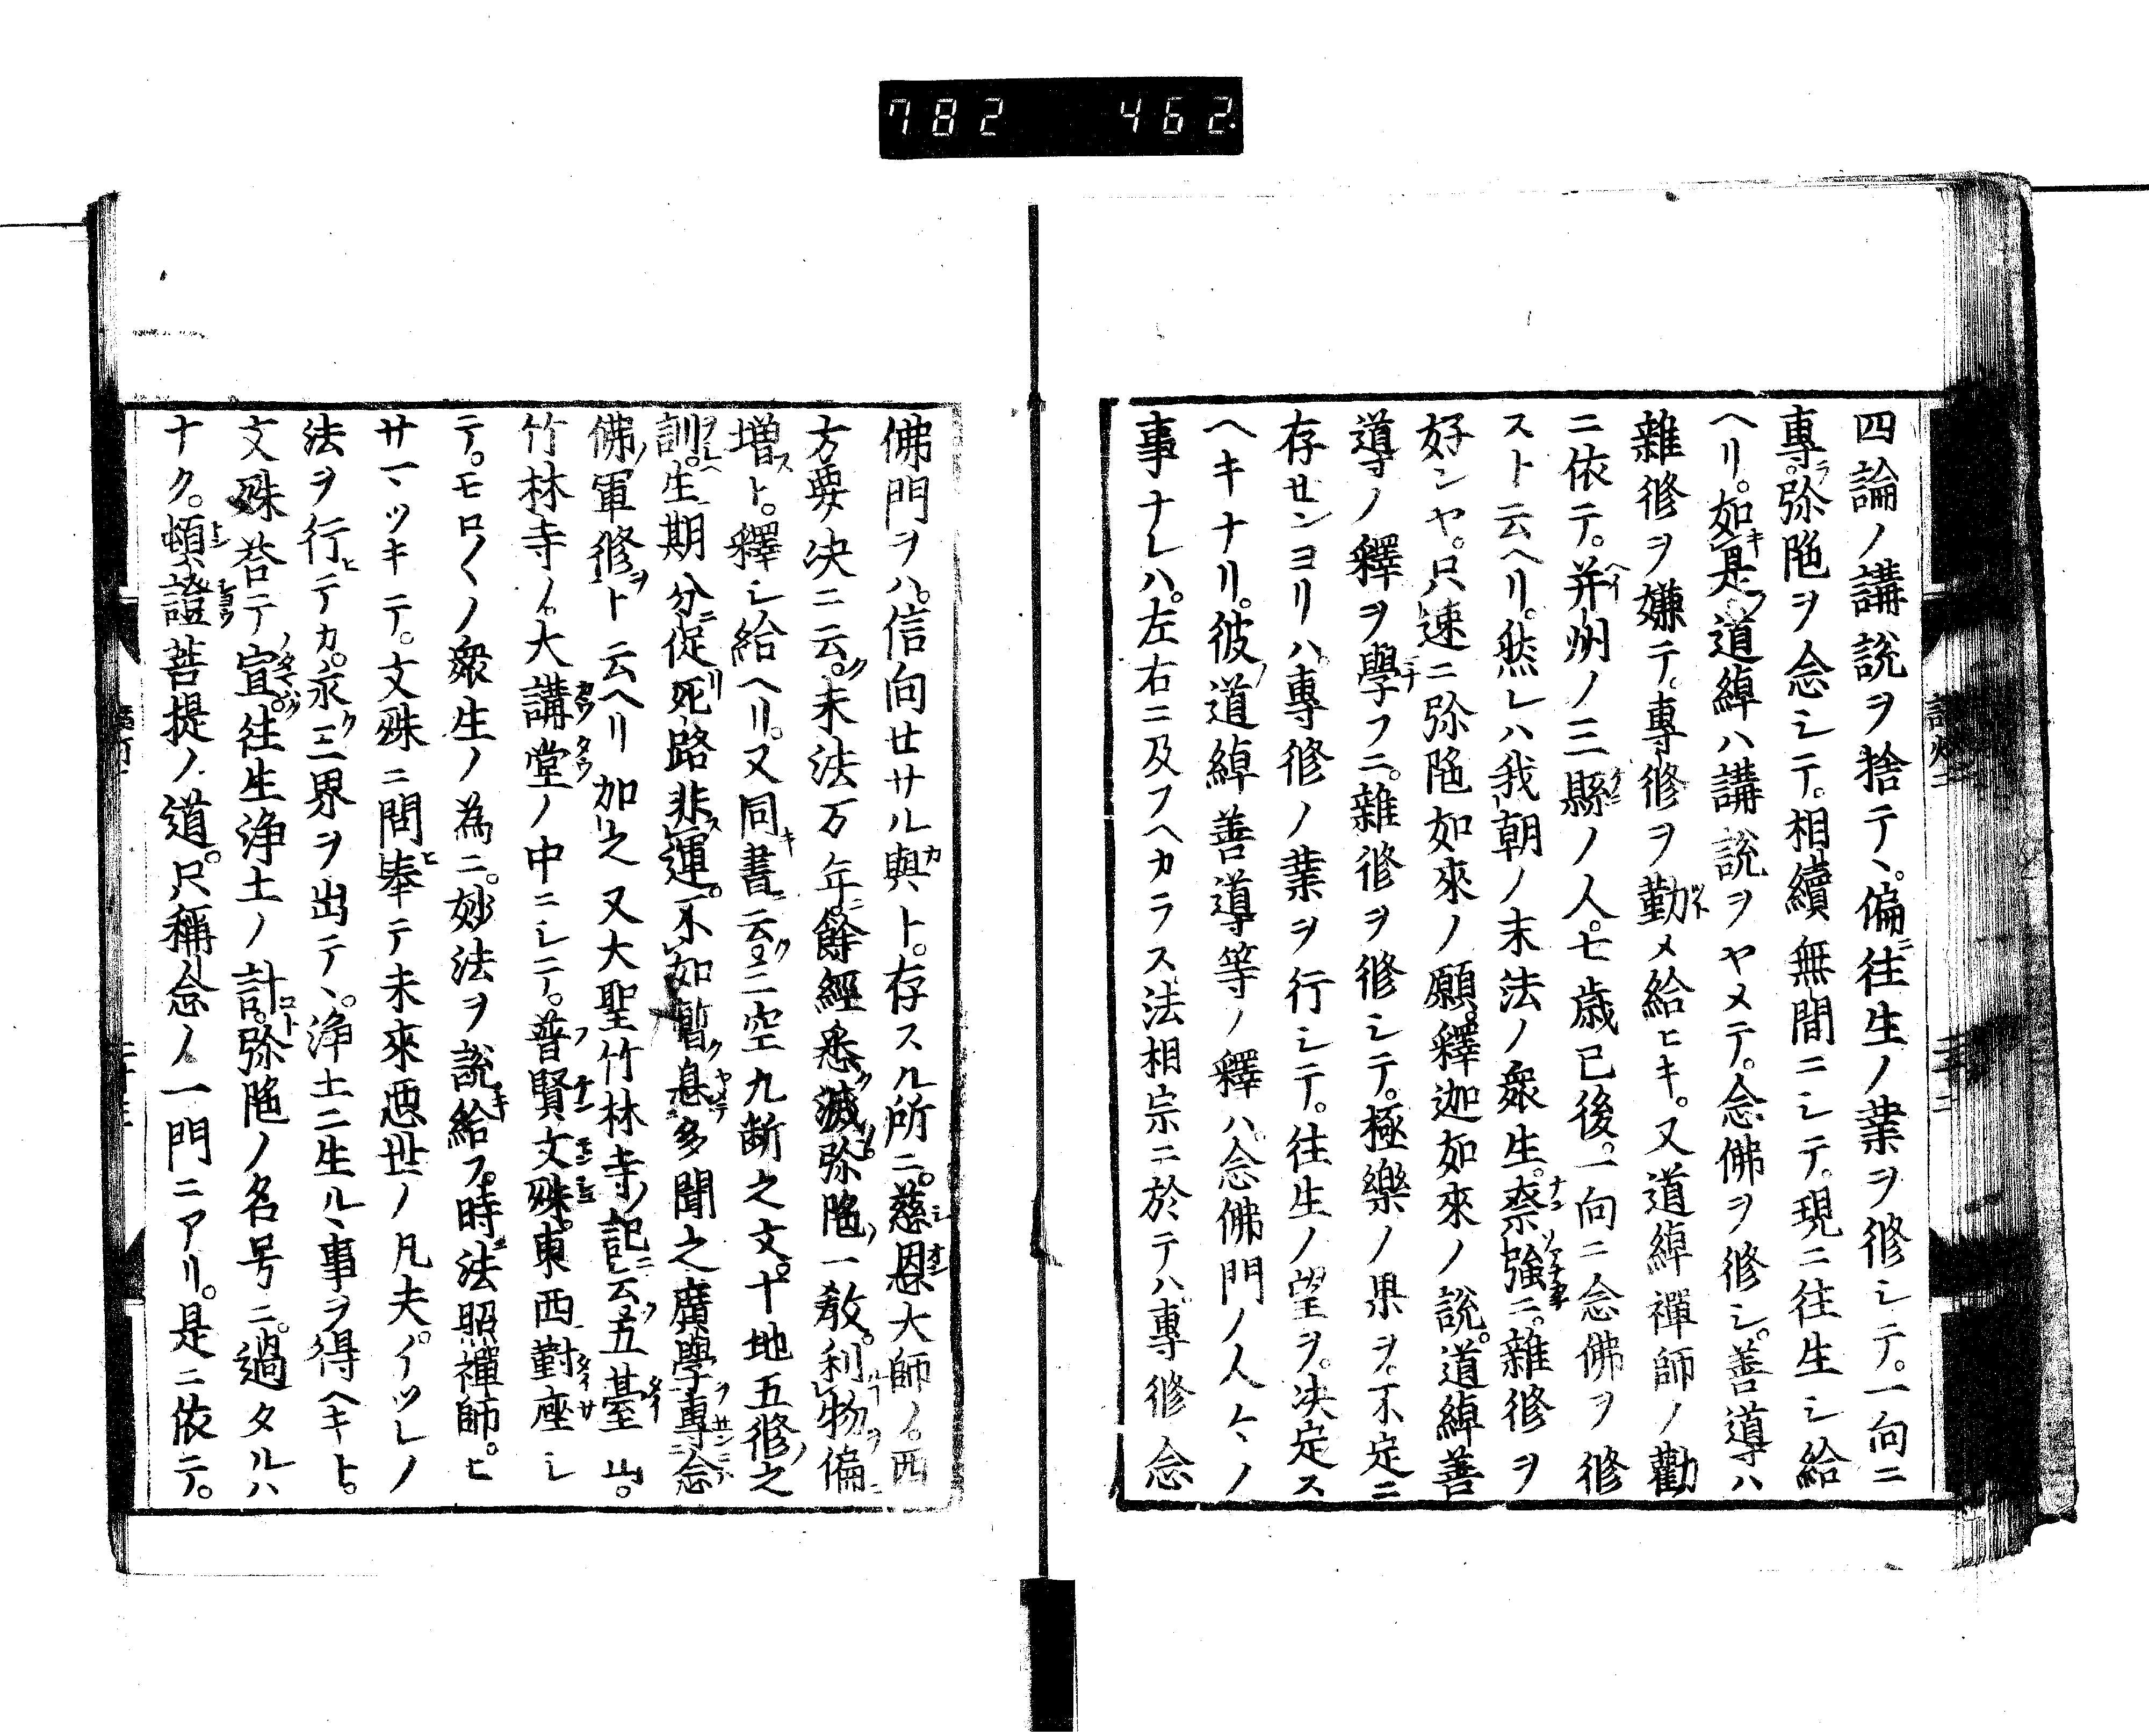 782 462
四論ノ講説ヲ捨テヽ。偏ニ往生ノ業ヲ修シテ。一向ニ
專ラ弥陁ヲ念シテ。相續無間ニシテ。現ニ往生シ給
ヘリ。如キ是ノ道綽ハ講説ヲヤメテ。念佛ヲ修シ。善導ハ
雜修ヲ嫌テ。專修ヲ勤メ給ヒキ。又道綽禪師ノ勸
ニ依テ。并州ノ三縣ノ人。七歳已後。一向ニ念佛ヲ修
スト云ヘリ。然レハ我朝ノ末法ノ衆生。柰強ニ。雜修ヲ
好ンヤ。只速ニ弥陁如來ノ願。釋迦如來ノ説。道綽善
導ノ釋ヲ學フニ。雜修ヲ修シテ。極樂ノ果ヲ。不定ニ
存センヨリハ。專修ノ業ヲ行シテ。往生ノ望ヲ。决定ス
ヘキナリ。彼ノ道綽善導等ノ釋ハ。念佛門ノ人々ノ
事ナレハ。左右ニ及フヘカラス法相宗ニ於テハ。專修念
佛門ヲハ。信向せサル與ト。存スル所ニ。慈恩大師ノ。西
方要决ニ云ク。末法万年ニ餘經悉滅弥陁一教。利物偏
増ト。釋シ給ヘリ。又同キ書ニ云ク。三空九断之文。十地五修之
訓。生期分促死路非運。不如暫息多聞之廣學專念
佛ノ軍修ヲト云ヘリ加之又大聖竹林寺ノ記ニ云ク。五臺山。
竹林寺ノ。大講堂ノ中ニシテ。普賢文殊。東西對座シ
テ。モロ〱ノ衆生ノ為ニ。妙法ヲ説キ給フ。時法照禪師。ヒ
サマツキテ。文殊ニ問ヒ奉テ未來惡世ノ凡夫。イツレノ
法ヲ行ヒテカ。永ク三界ヲ出テヽ。浄土ニ生ルヽ事ヲ得ヘキト。
文殊荅テ宣ク。往生浄土ノ計。弥陁ノ名号ニ。過タルハ
ナク。頓證菩提ノ道。只稱念ノ一門ニアリ。是ニ依テ。